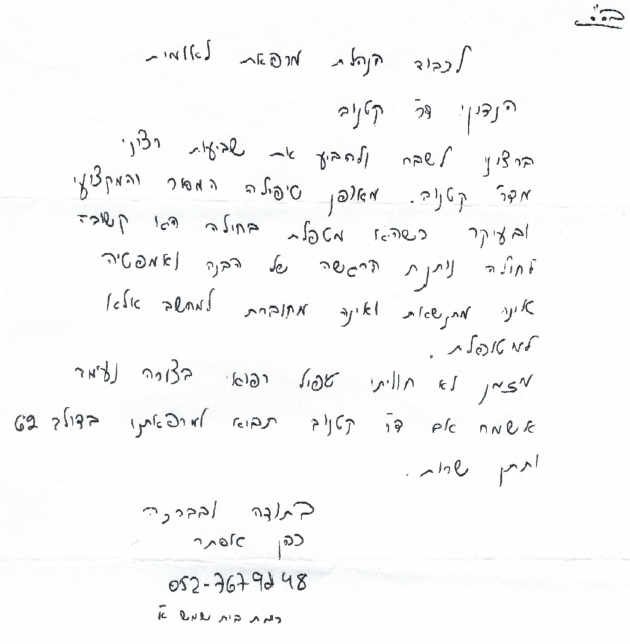 בס"ד
לכבוד הנהלת מרפאת לאומית
הנדון: דר' קטנוב
ברצוני לשבח ולהביע את שביעות רצוני
מדר' קטנוב. מאופן טיפולה המסור והמקצועי
ובעיקר כשהיא מטפלת בחולה היא קשובה
לחולה ונותנת הרגשה של הבנה ואמפטיה
אינה מתנשאת ואינה מחוברת למחשב אלא
למטופלת.
מזמן לא חוויתי טפול רפואי בצורה נעימה
אשמח אם דר' קטנוב תבוא למרפאתנו בדולב 62
ותתן שרות.
בתודה ובברכה
כהן אסתר
052-7679248
רמת בית שמש א'